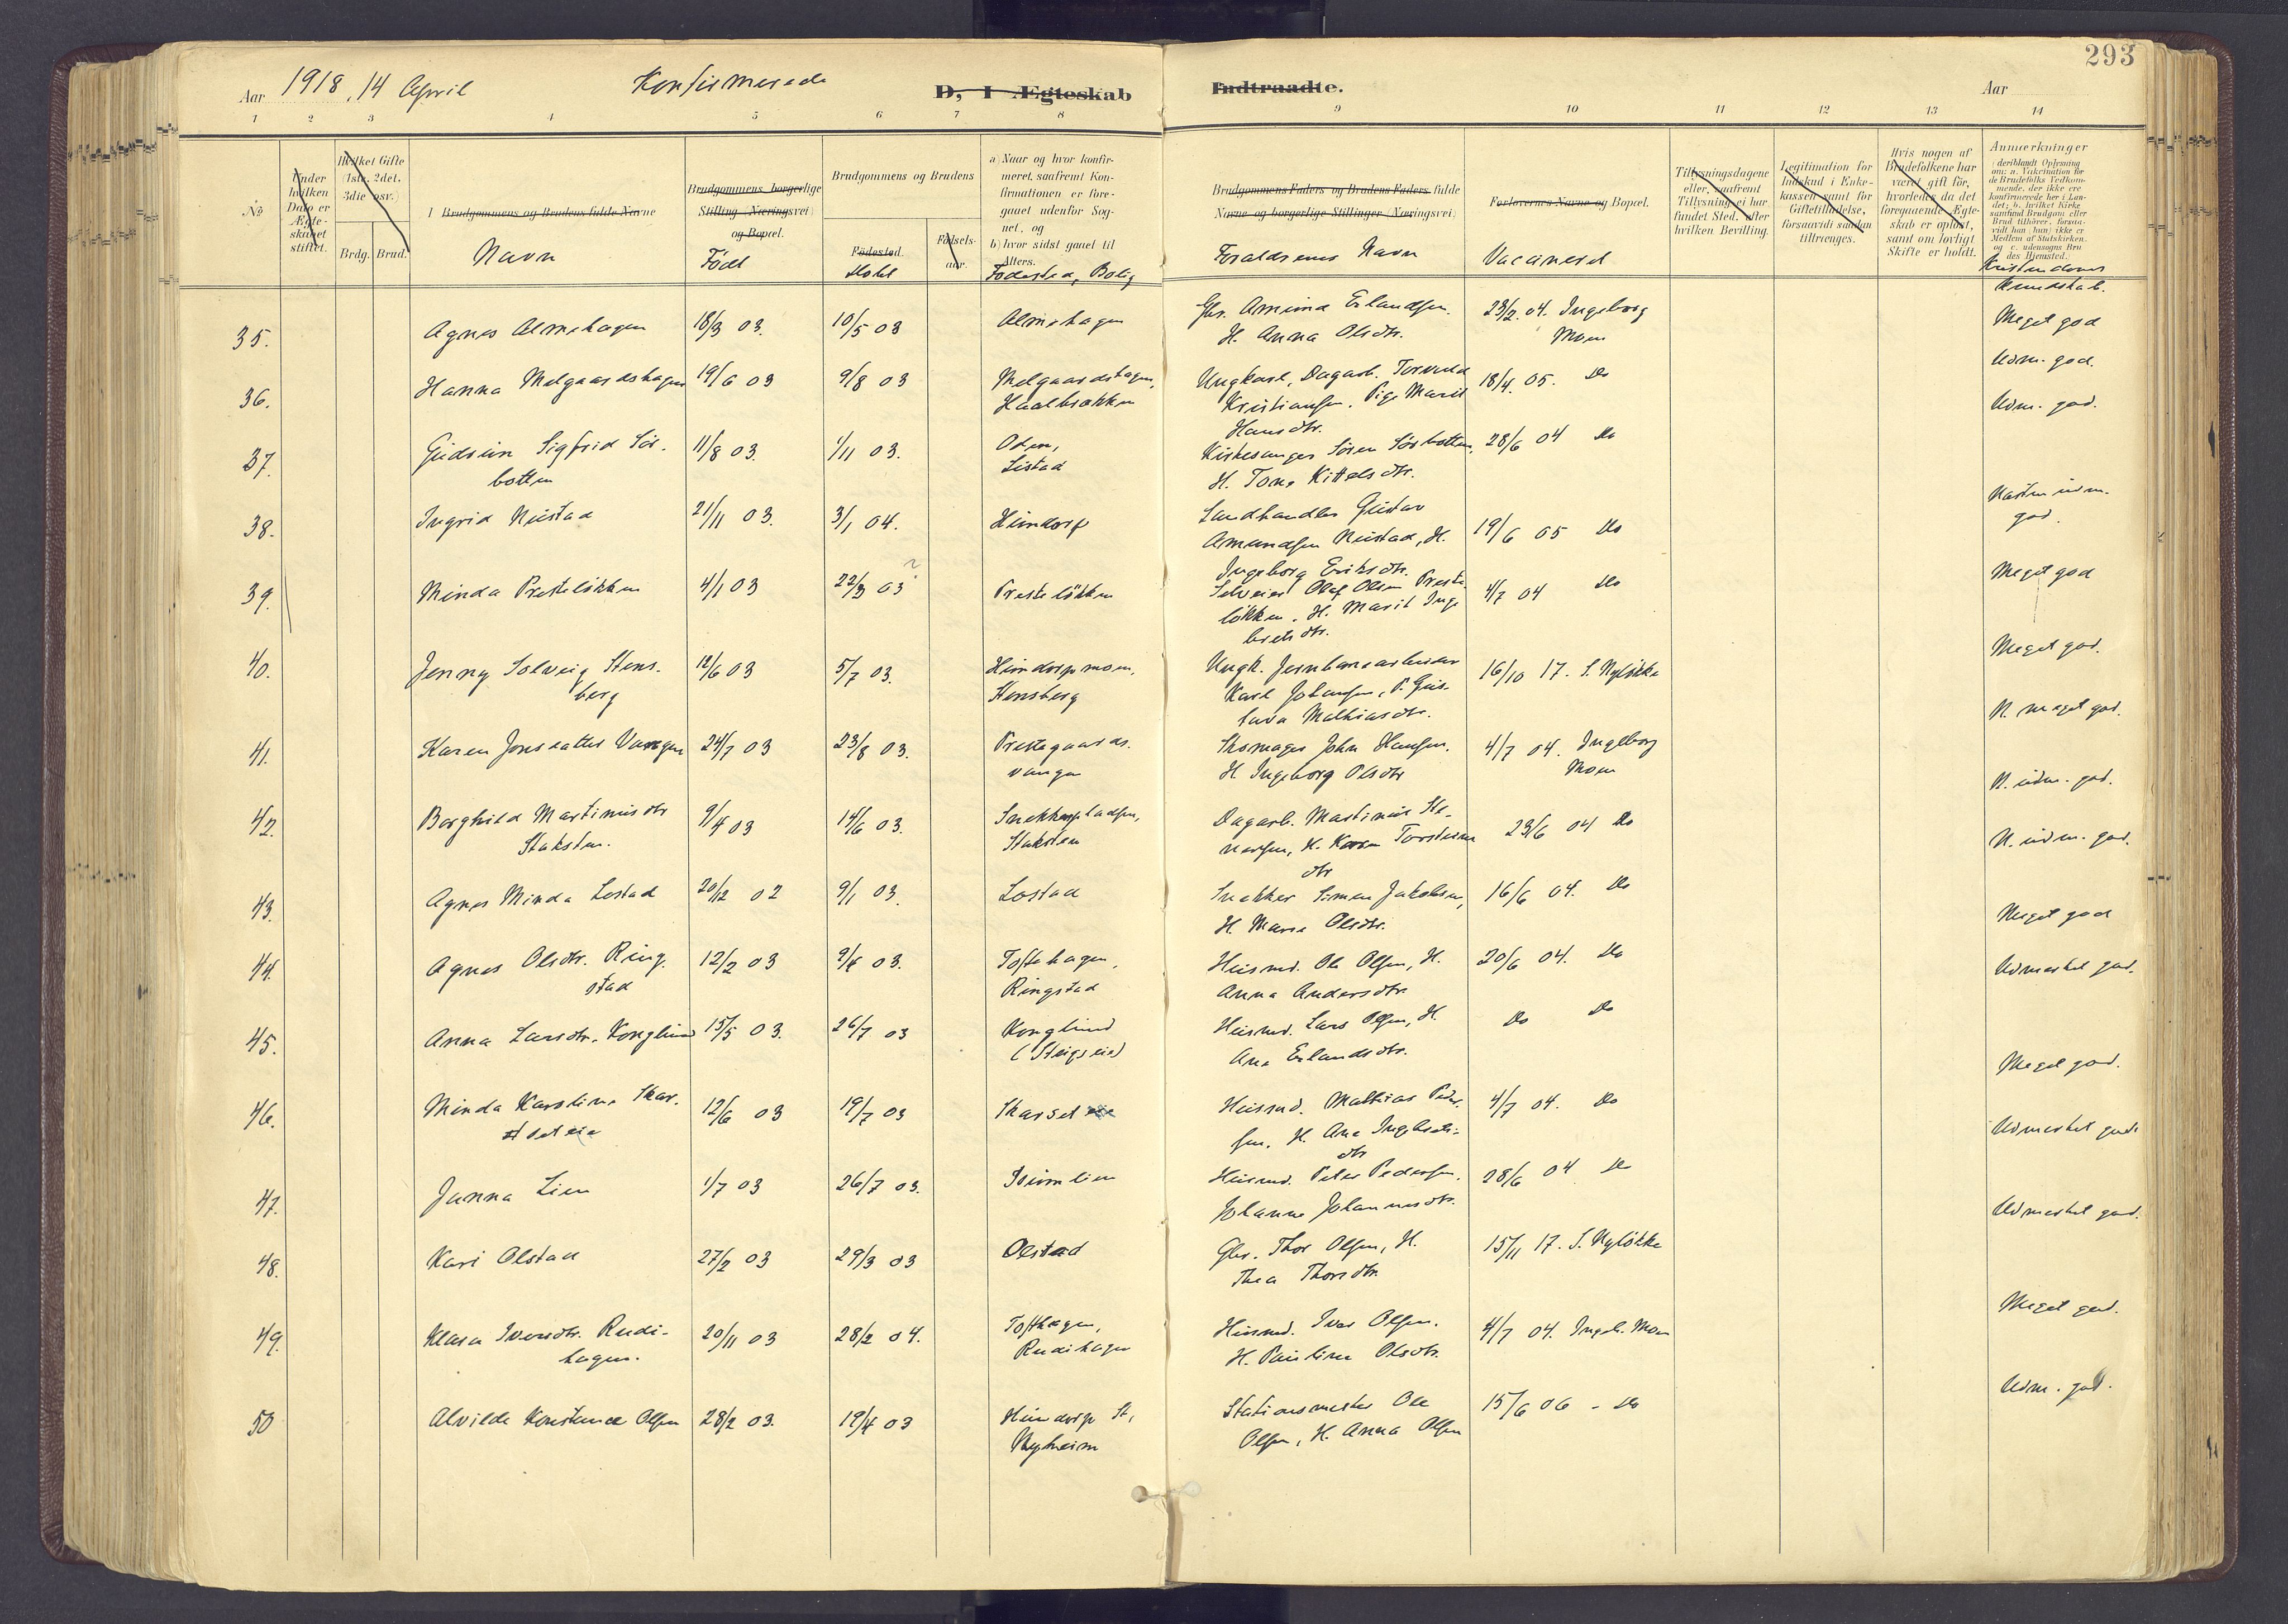 293
Aar 1918, 14 April Konfirmerede D, I Ægteskab Indtraadte. Aar
1 2 3 4 5 6 7 8 9 10 11 12 13 14
№
Under hvilken Dato er Ægteskabet stiftet.
Hvilket Gifte (1ste, 2det, 3die osv.)
Brdg. Brud.
1 Brudgommens og Brudens fulde Navne
Navn
Brudgommens borgerlige Stilling (Næringsvei) og Bopæl.
Født
Brudgommens og Brudens
Fødested.
Døbt
Fødselsaar.
a) Naar og hvor konfirmeret, saafremt Konfirmationen er foregaaet udenfor Sognet, og
b) hvor sidst gaaet til Alters.
Fødested, Bolig
Brudgommens Faders og Brudens Faders fulde Navne og borgerlige Stillinger (Næringsvei)
Forældrenes Navn
Forlovernes Navne og Bopæl.
Vaccineret
Tillysningsdagene eller, saafremt Tillysning ei har fundet Sted, efter hvilken Bevilling.
Legitimation for Indskud i Enkekassen samt for Giftetilladelse, forsaavidt saadan tiltrænges.
Hvis nogen af Brudefolkene har været gift før, hvorledes da det foregaaende Ægteskab er opløst, samt om lovligt Skifte er holdt.
Anmærkninger
Kristendoms
kundskab.
35. Agnes Almehagen 18/3 03. 10/5 03 Almehagen Gbr. Amund Erlandsen. 23/2 04. Ingeborg Meget god
H. Anna Olsdtr. Moen
Udm. god.
36. Hanna Melgaardshagen 19/6 03 9/8 03 Melgaardshagen, Ungkarl, Dagarb. Torvald 18/4. 05. Do
Haalbrækken Kristiansen. Pige Marit Udm. god.
Hansdtr.
37. Gudrun Sigfrid Sör- 11/8 03. 1/11 03. Oden, Kirkesanger Sören Sörbotten, 28/6 04 Do
botten Listad H. Tone Kittelsdtr.
Næsten udm.
38. Ingrid Rustad 21/11 03. 3/1 04. Hundorp Landhandler Gustav god.
Amundsen Rustad, H. 19/6 05 Do
Ingeborg Eriksdtr.
39. Minda Prestelökken 4/1 03 22/3 03 ? Prestelökken Selveier Olaf Olsen Preste- 4/7 04 Do Meget god
lökken. H. Marit Inge
bretsdtr.
40. Jenny Solveig Stens- 12/6 03 5/7 03. Hundorpmoen, Ungk. Jernbanearbeider 16/10 17. S. Nylökke Meget god.
berg Stensberg Karl Johansen, P. Gus-
tava Mathiasdtr. N. meget god.
41. Karen Jonsdatter Vangen 24/7 03 23/8 03. Prestegaards- Skomager John Hansen. 4/7 04. Ingeborg
vangen H. Ingeborg Olsdtr Moen N. udm. god.
42. Borghild Martinusdtr 9/4 03 14/6 03. Snekkerpladsen, Dagarb. Martinus Ste- 23/6 04 Do
Staksten. Staksten nersen, H. Karen Torstens N. udm. god.
dtr
43. Agnes Minda Lostad 20/12 02 9/1 03. Lostad Snekker Simen Jakobsen, 16/6 04. Do
H. Marie Olsdtr. Meget god
44. Agnes Olsdtr. Ring- 12/2 03 9/4 03. Toftehagen, Husmd. Ole Olsen, H. 20/6 04. Do Udmerket god.
stad Ringstad Anna Andersdtr
45. Anna Larsdtr. Konglund 15/5 03. 26/7 03 Konglund Husmd. Lars Olsen, H. Do Do
(Steigseie) Ane Erlandsdtr. Meget god.
46. Minda Karoline Skar- 12/6 03 19/7 03 Skarset Husmd. Mathias Peder- 4/7 04. Do Udmerket god.
seteie sen. H. Ane Ingebrets-
dtr
47. Janna Lien 1/7 03 26/7 03. Husmd. Peter Pedersen. 28/6 04 Do
Johanne Johannesdtr. Udmerket god.
48. Kari Olstad 27/2 03 29/3 03 Olstad Gbr. Thor Olsen, H. 15/11 17. S. Nylökke
Thea Thorsdtr.
Meget god.
49. Klara Iversdtr. Rudi- 20/11 03 28/2 04. Tofthagen, Husmd. Iver Olsen. 4/7 04. Ingeb. Moen
hagen. Rudihagen H. Pauline Olsdtr.
Udm. god.
50 Alvilde Konstance Olsen 28/2 03. 19/4 03 Hundorp St, Stationsmester Ole 15/6 06 - Do
Nyheim Olsen, H. Anna Olsen